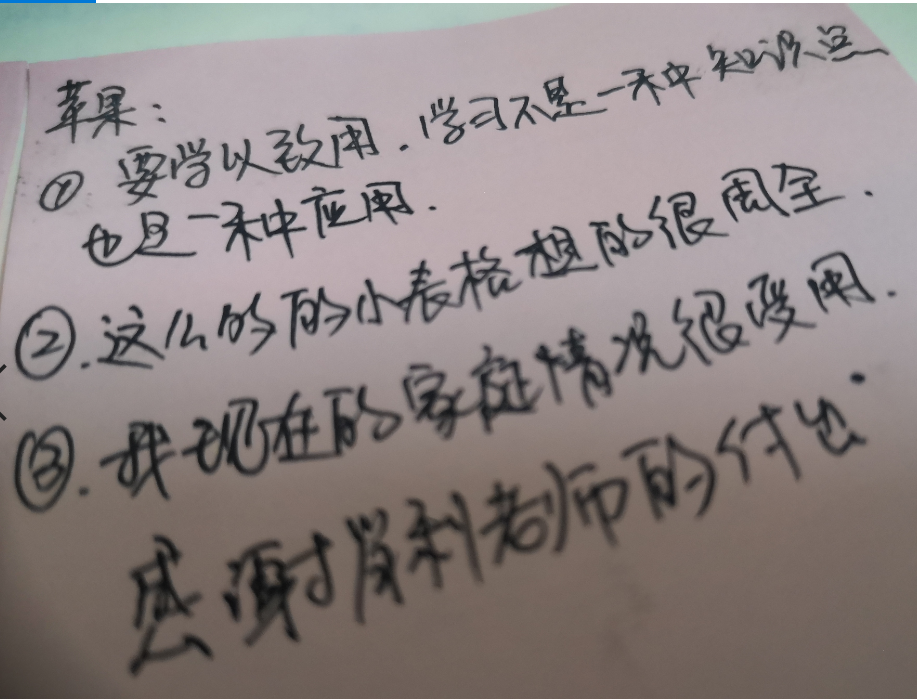 苹果:
① 要学以致用.学习不是一种知识点
也是一种应用.
②.这么的的小表格想的很周全.
③.我现在的家庭情况很受用.
感谢肖利老师的付出